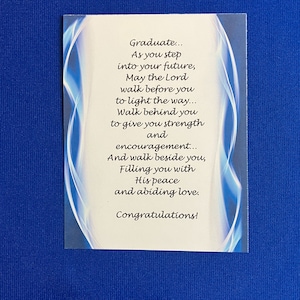 Graduate...
As you step
into your future,
May the Lord
walk before you
to light the way...
Walk behind you
to give you strength
and
encouragement...
And walk beside you,
Filling you with
His peace
and abiding love.
Congratulations!